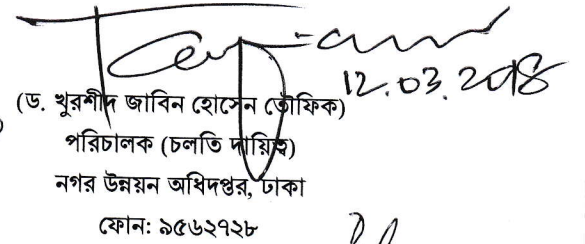 12.03.2018
(ড. খুরশীদ জাবিন হোসেন তৌফিক)
পরিচালক (চলতি দায়িত্ব)
নগর উন্নয়ন অধিদপ্তর, ঢাকা
ফোন: ৯৫৬২৭২৮